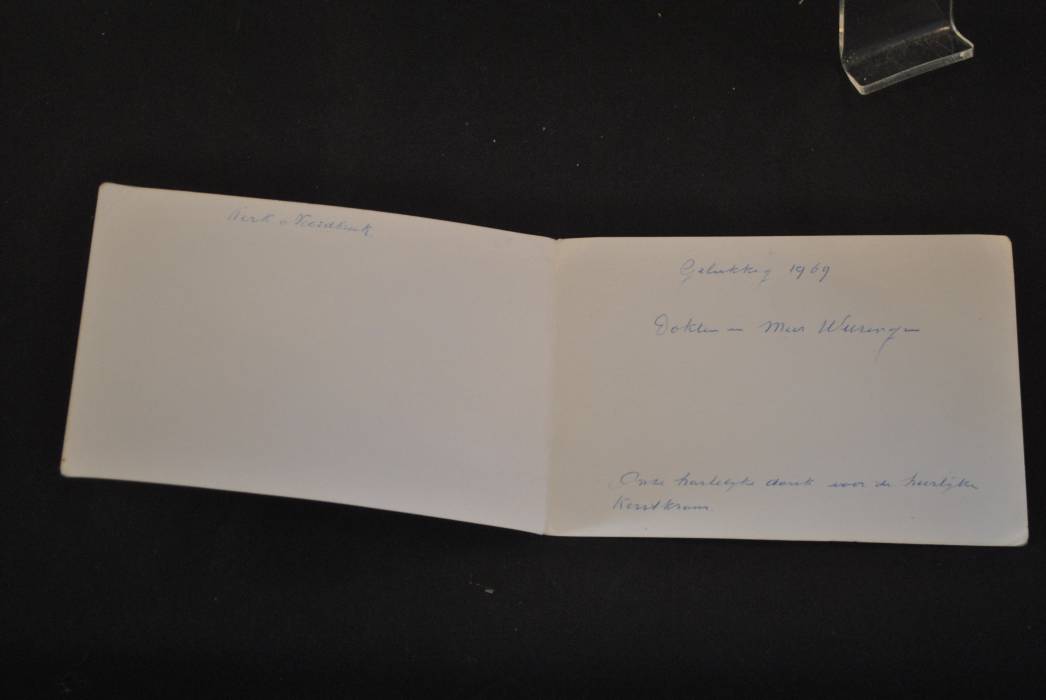 Kerk Noordbroek
Gelukkig 1969
Dokter en Mevr Wieringa
Onze hartelijke dank voor de heerlijke
Kerstkrans.